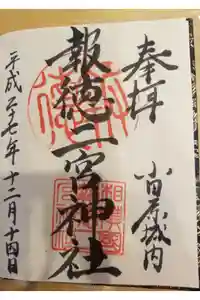 奉拝
小田原城内
報徳二宮神社
平成二十七年十二月十四日